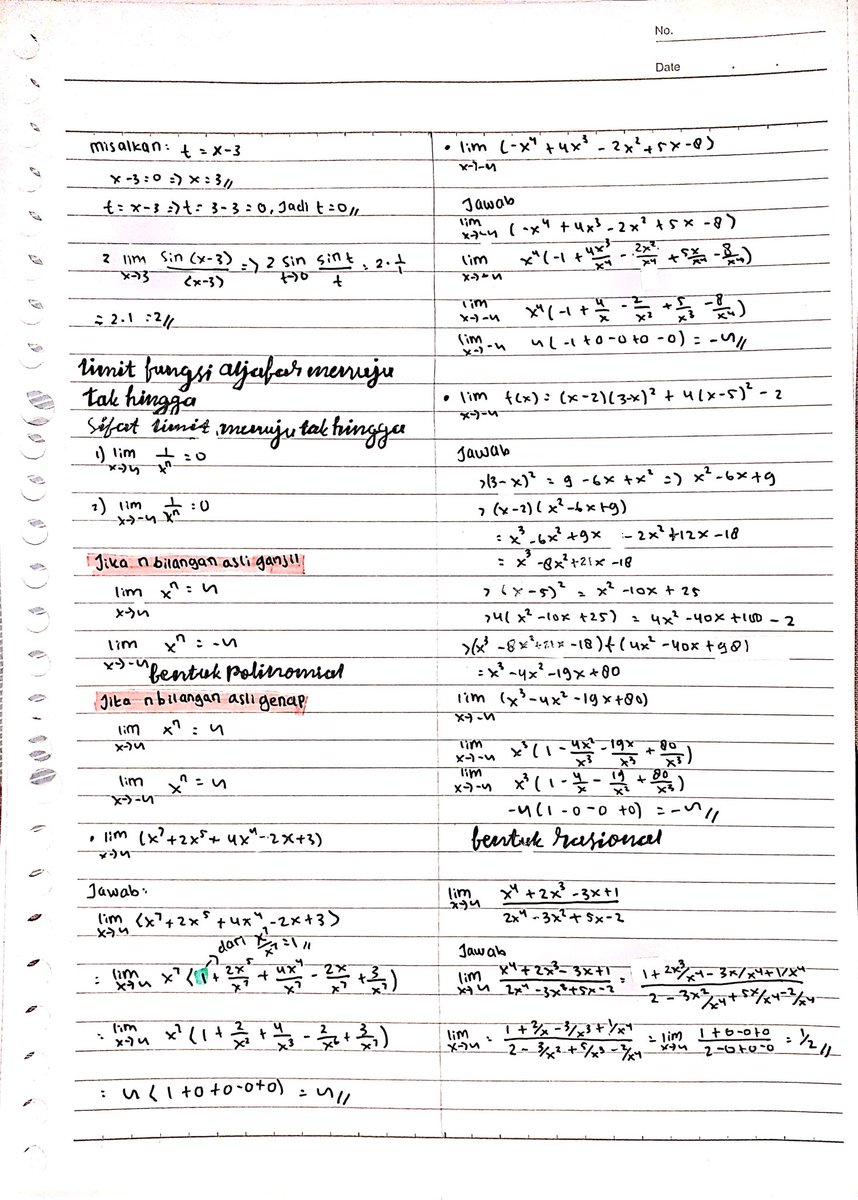 No.
Date
misalkan: t = x-3
x-3=0 => x=3//
t = x-3 => t = 3-3 = 0, Jadi t=0//
2 lim x→3 sin (x-3)/(x-3) => 2 sin t→0 sin t/t = 2·1/1
= 2·1 = 2//
limit fungsi aljabar menuju
tak hingga
Sifat limit menuju tak hingga
1) lim x→∞ 1/xⁿ = 0
2) lim x→-∞ 1/xⁿ = 0
Jika n bilangan asli ganjil
lim x→∞ xⁿ = ∞
lim x→-∞ xⁿ = -∞
bentuk polinomial
Jika n bilangan asli genap
lim x→∞ xⁿ = ∞
lim x→-∞ xⁿ = ∞
• lim x→∞ (x⁷+2x⁵+4x⁴-2x+3)
Jawab:
lim x→∞ (x⁷+2x⁵+4x⁴-2x+3)
dari x⁷/x⁷=1//
= lim x→∞ x⁷ (1+2x⁵/x⁷+4x⁴/x⁷-2x/x⁷+3/x⁷)
= lim x→∞ x⁷ (1+2/x²+4/x³-2/x⁶+3/x⁷)
= ∞ (1+0+0-0+0) = ∞//
• lim x→-∞ (-x⁴+4x³-2x²+5x-8)
Jawab
lim x→-∞ (-x⁴+4x³-2x²+5x-8)
lim x→-∞ x⁴(-1+4x³/x⁴-2x²/x⁴+5x/x⁴-8/x⁴)
lim x→-∞ x⁴(-1+4/x-2/x²+5/x³-8/x⁴)
lim x→-∞ ∞(-1+0-0+0-0) = -∞//
• lim x→-∞ f(x) = (x-2)(3-x)²+4(x-5)²-2
Jawab
>(3-x)² = 9-6x+x² => x²-6x+9
>(x-2)(x²-6x+9)
= x³-6x²+9x -2x²+12x-18
= x³-8x²+21x-18
>(x-5)² = x²-10x+25
>4(x²-10x+25) = 4x²-40x+100-2
>(x³-8x²+21x-18)+(4x²-40x+98)
= x³-4x²-19x+80
lim x→-∞ (x³-4x²-19x+80)
lim x→-∞ x³(1-4x²/x³-19x/x³+80/x³)
lim x→-∞ x³(1-4/x-19/x²+80/x³)
-∞(1-0-0+0) = -∞//
bentuk rasional
lim x→∞ x⁴+2x³-3x+1/2x⁴-3x²+5x-2
Jawab
lim x→∞ x⁴+2x³-3x+1/2x⁴-3x²+5x-2 = 1+2x³/x⁴-3x/x⁴+1/x⁴/2-3x²/x⁴+5x/x⁴-2/x⁴
lim x→∞ = 1+2/x-3/x³+1/x⁴/2-3/x²+5/x³-2/x⁴ = lim x→∞ 1+0-0+0/2-0+0-0 = 1/2//